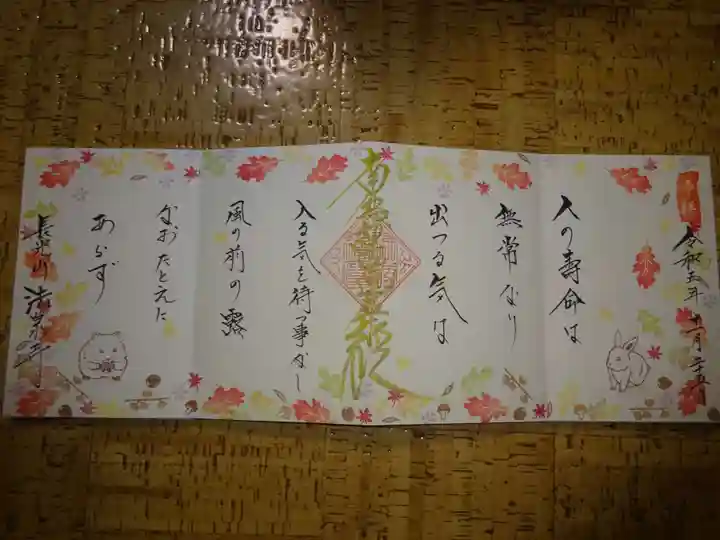 奉拝
令和五年十一月二十五日
人の寿命は
無常なり
出づる気は
南無妙法蓮華経
入る気を待つ事なし
風の前の露
なおたとえに
あらず
長光山 法泉寺